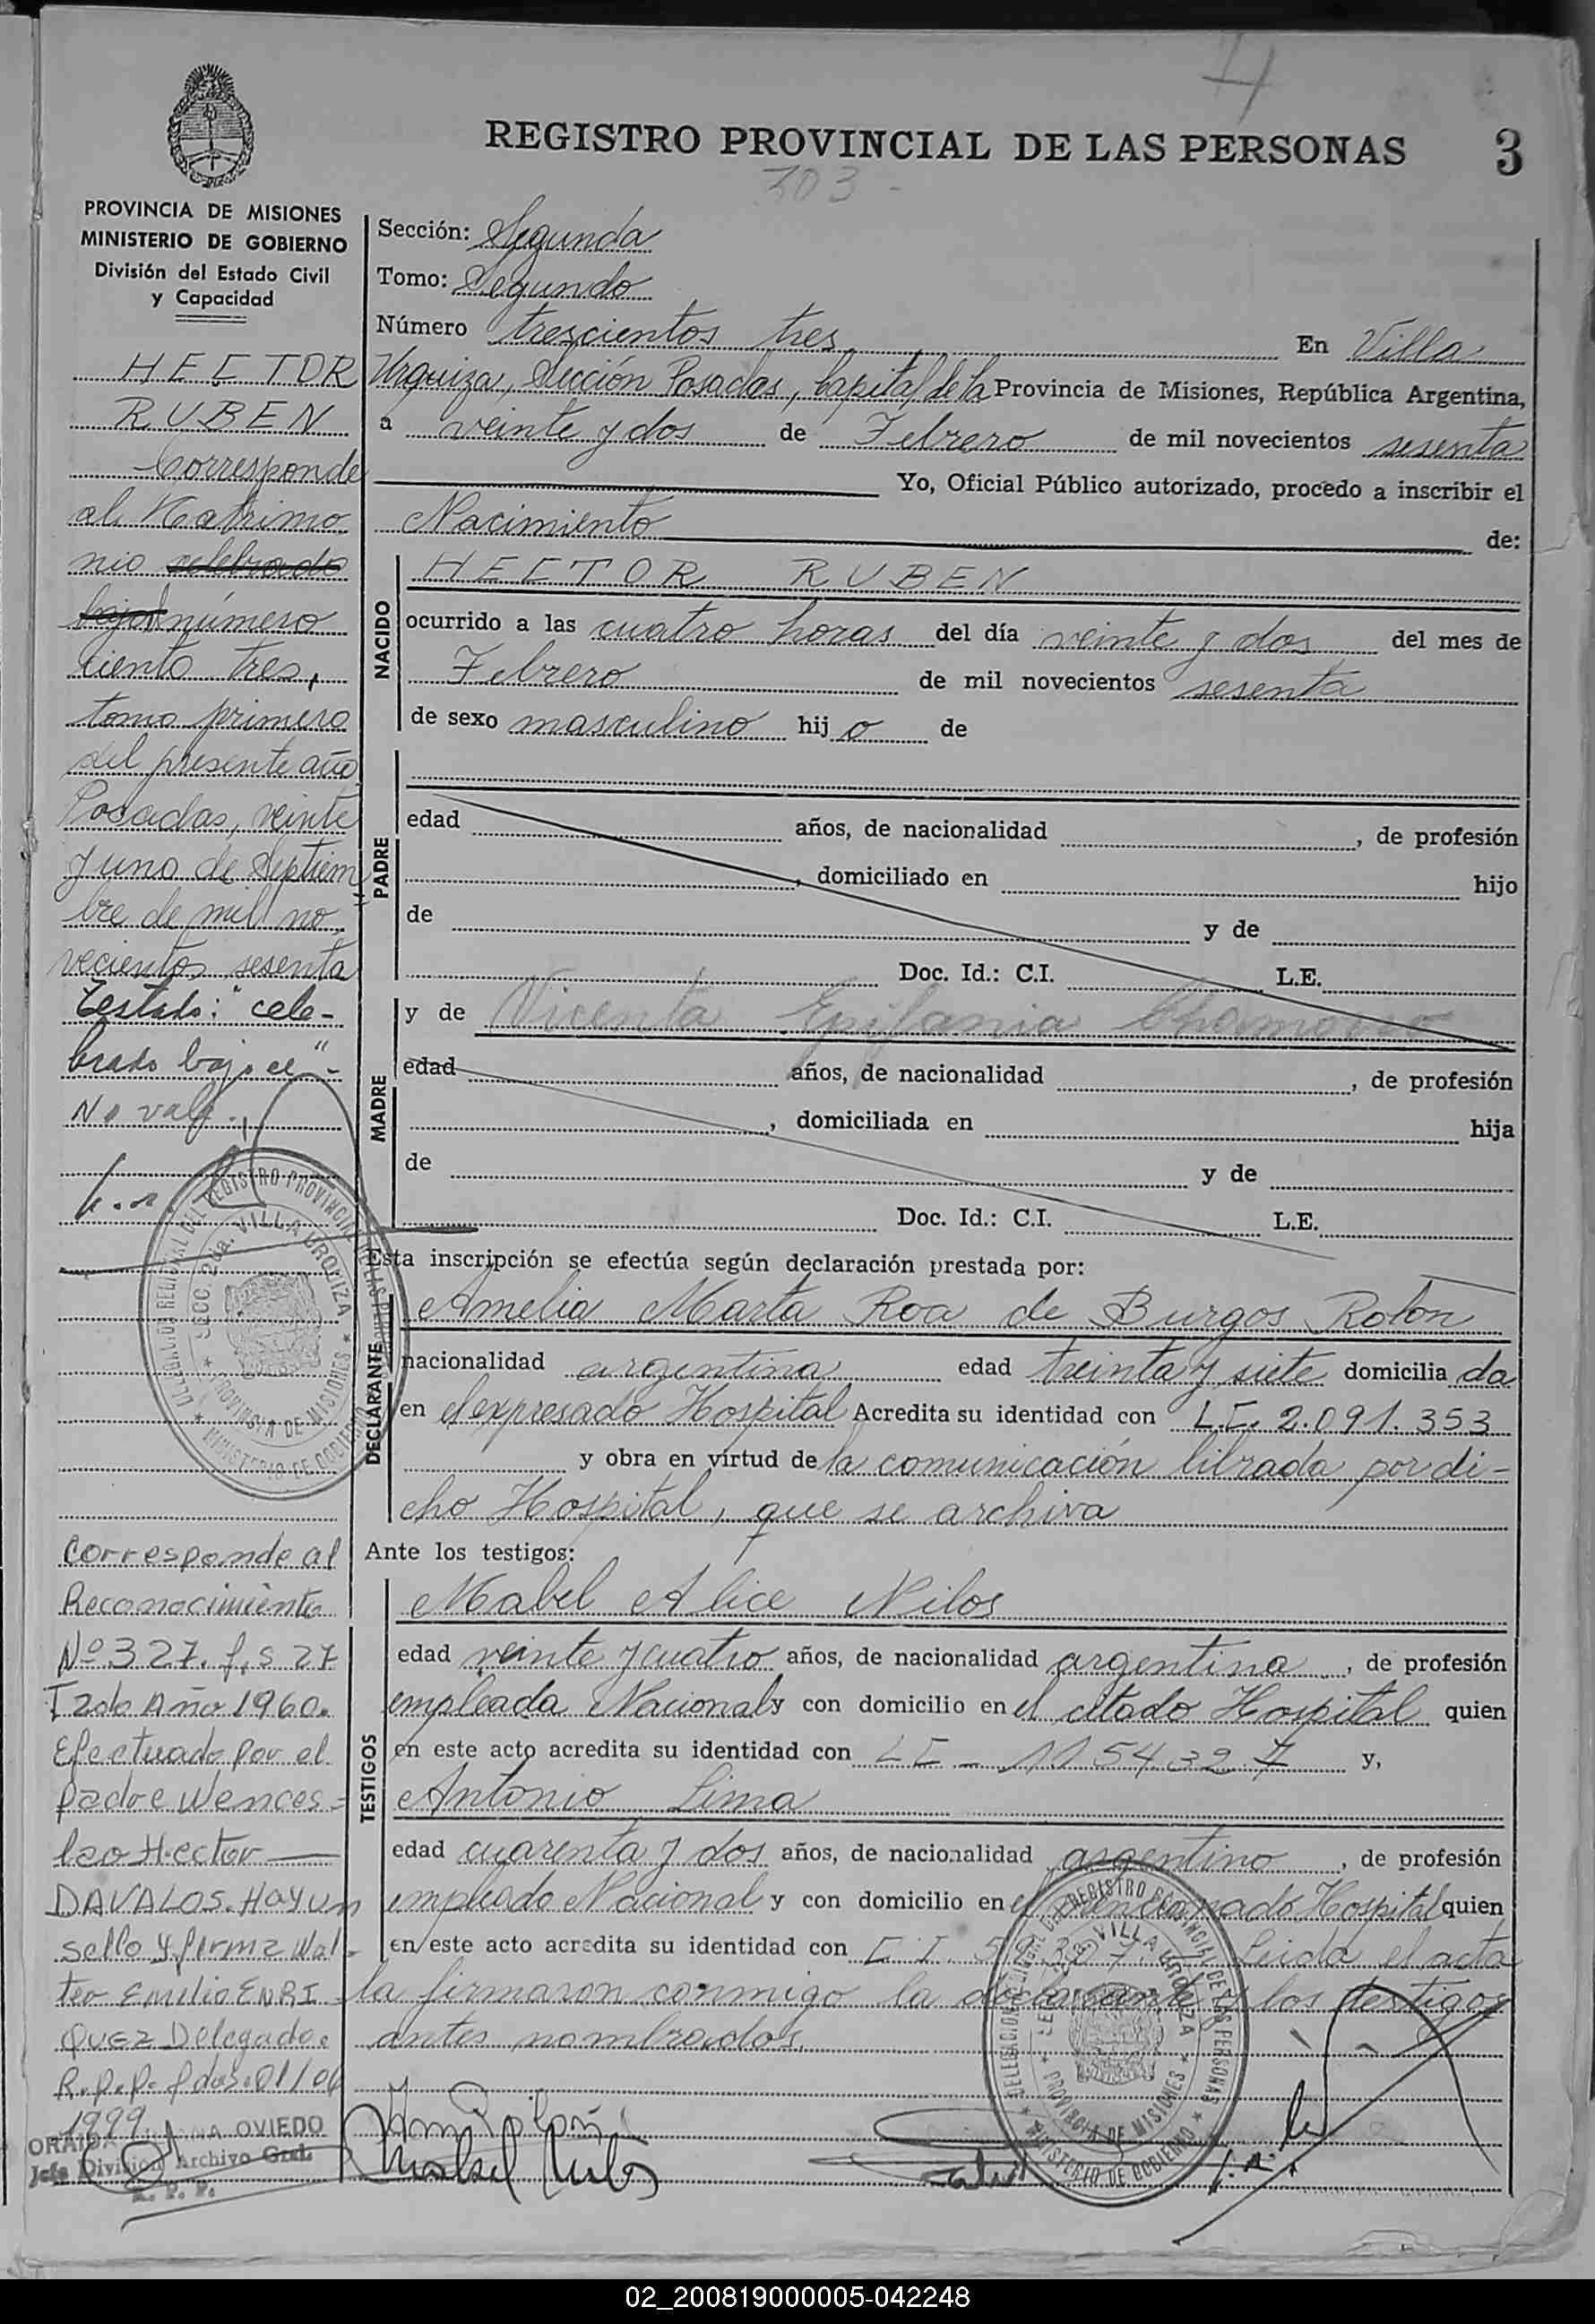 4
REGISTRO PROVINCIAL DE LAS PERSONAS 3
303 -
PROVINCIA DE MISIONES
MINISTERIO DE GOBIERNO
División del Estado Civil
y Capacidad
HECTOR
RUBEN
Corresponde
al Matrimo
nio celebrado
bajo el número
ciento tres,
tomo primero
del presente año
Posadas, veinte
y uno de Septiem
bre de mil no
vecientos sesenta
Testado: "cele-
brado bajo el" -
No vale.
Corresponde al
Reconocimiento
Nº 327. f.s 27
T 2do Año 1960.
Efectuado por el
padre Wences-
lao Hector
DAVALOS. Hay un
sello y firma Wal-
ter Emilio ENRI
QUEZ Delegado.
R.p.p. Pdas. 01/06
1999
OVIEDO
Jefe División Archivo Gral.
R. P. P.
Sección: Segunda
Tomo: Segundo
Número trescientos tres En Villa
Urquiza, Sección Posadas, Capital de la Provincia de Misiones, República Argentina,
a veinte y dos de Febrero de mil novecientos sesenta
Yo, Oficial Público autorizado, procedo a inscribir el
Nacimiento de:
NACIDO
HECTOR RUBEN
ocurrido a las cuatro horas del día veinte y dos del mes de
Febrero de mil novecientos sesenta
de sexo masculino hijo de
PADRE
edad años, de nacionalidad , de profesión
, domiciliado en hijo
de y de
Doc. Id.: C.I. L.E.
MADRE
y de Vicenta Epifania Chamorro
edad años, de nacionalidad , de profesión
, domiciliada en hija
de y de
Doc. Id.: C.I. L.E.
Esta inscripción se efectúa según declaración prestada por:
DECLARANTE
Amelia Marta Roa de Burgos Rolon
nacionalidad argentina edad treinta y siete domiciliada
en el expresado Hospital Acredita su identidad con L.C. 2.091.353
y obra en virtud de la comunicación librada por di-
cho Hospital, que se archiva
Ante los testigos:
TESTIGOS
Mabel Alice Nilos
edad veinte y cuatro años, de nacionalidad argentina , de profesión
empleada Nacional y con domicilio en el citado Hospital quien
en este acto acredita su identidad con LC - 1154327 y,
Antonio Lima
edad cuarenta y dos años, de nacionalidad argentino , de profesión
empleado Nacional y con domicilio en el mencionado Hospital quien
en este acto acredita su identidad con C.I. Leida el acta
la firmaron conmigo la declarante y los testigos
antes nombrados.
DELEGACION REGIONAL DEL REGISTRO PROVINCIAL DE LAS PERSONAS
SECC. 2da. VILLA URQUIZA
PROVINCIA DE MISIONES
MINISTERIO DE GOBIERNO
02_200819000005-042248